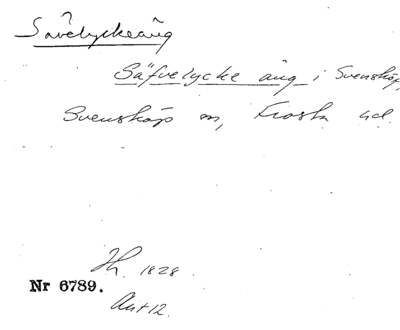 Sävelyckeäng
Säfvelycke äng i Svensköp,
Svensköp sn, Frosta hd.
Jh. 1828.
Nr 6789.
Akt 12.